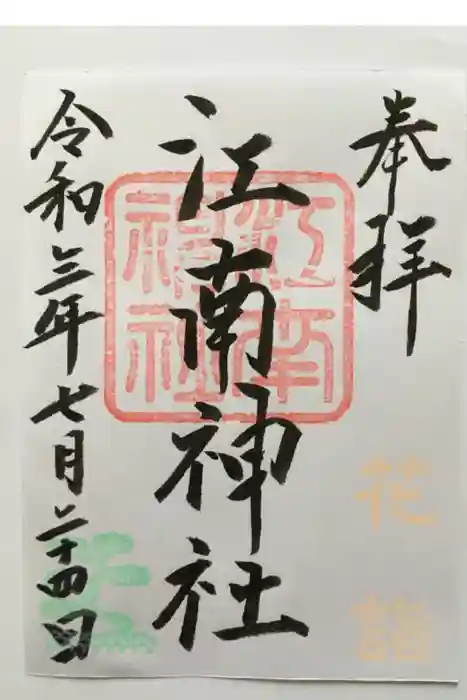 奉拝
花詣
江南神社
江南神社
令和三年七月二十四日